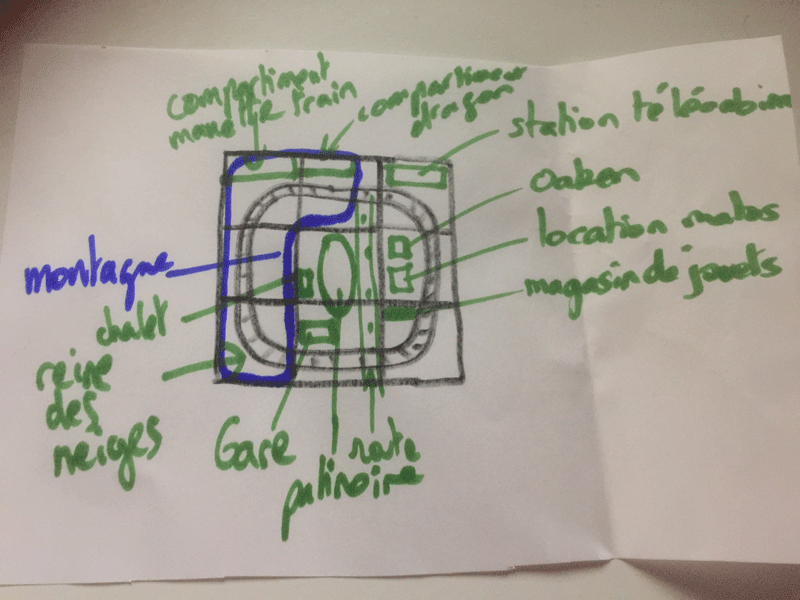 compartiment
manette train
compartiment
dragon
station télécabine
oaken
location matos
magasin de jouets
montagne
chalet
reine
des
neiges
Gare
patinoire
route